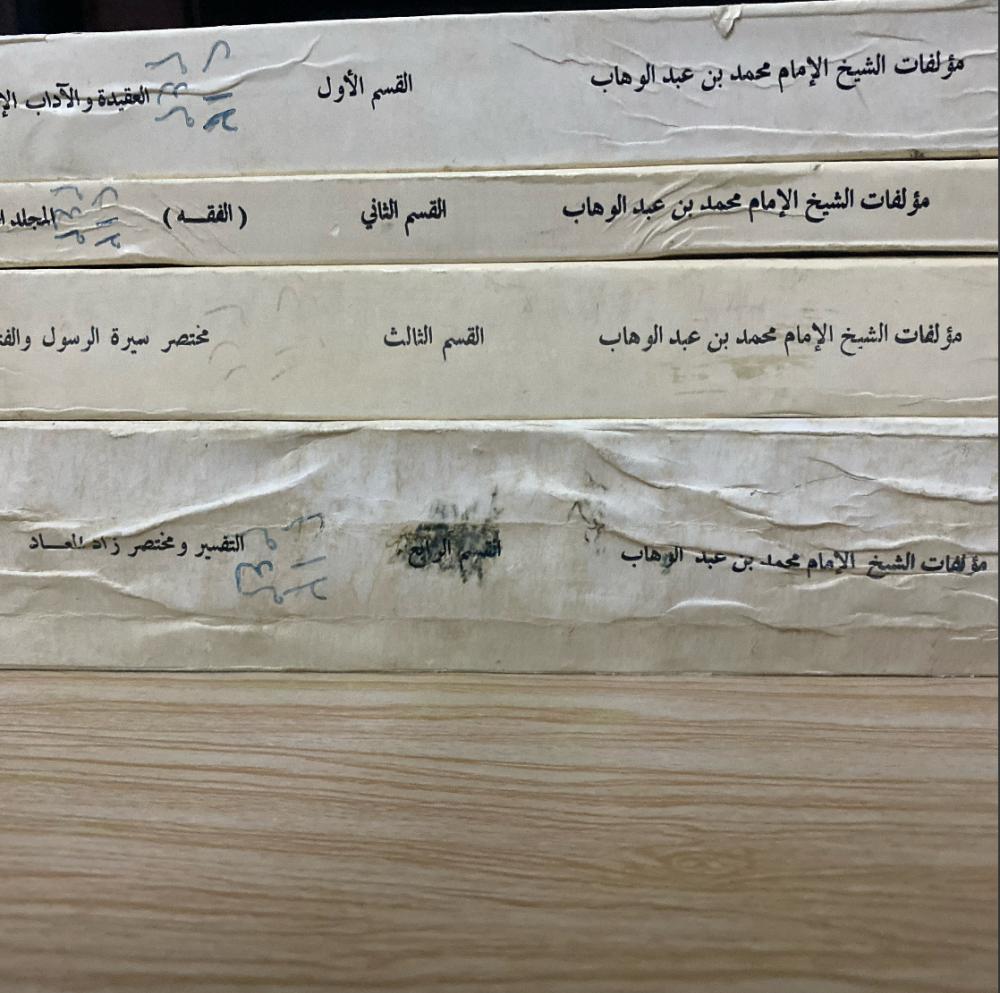 مؤلفات الشيخ الإمام محمد بن عبد الوهاب القسم الأول العقيدة والآداب
مؤلفات الشيخ الإمام محمد بن عبد الوهاب القسم الثاني ( الفقـــه ) المجلد
مؤلفات الشيخ الإمام محمد بن عبد الوهاب القسم الثالث مختصر سيرة الرسول
مؤلفات الشيخ الإمام محمد بن عبد الوهاب القسم الرابع التفسير ومختصر زاد المعـــاد